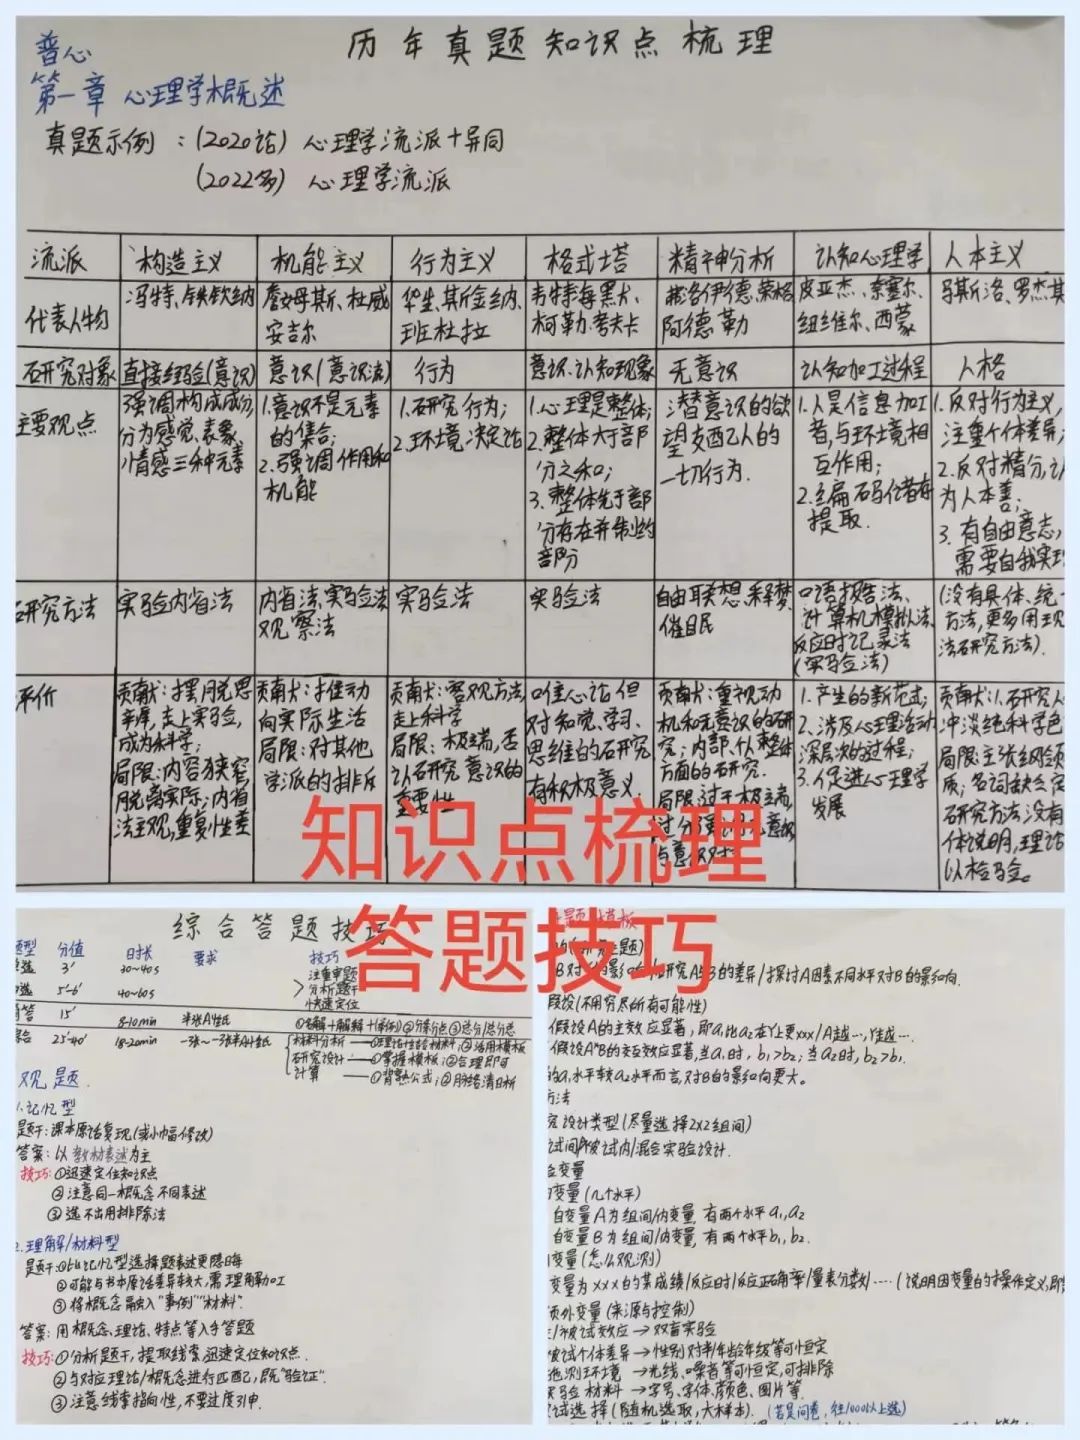 历年真题知识点梳理
普心
第一章 心理学概述
真题示例：(2020论) 心理学流派+异同
(2022多) 心理学流派
流派
构造主义
机能主义
行为主义
格式塔
精神分析
认知心理学
人本主义
代表人物
冯特、铁钦纳
詹姆斯、杜威
安吉尔
华生、斯金纳、
班杜拉
韦特海默、
柯勒、考夫卡
弗洛伊德、荣格
阿德勒
皮亚杰、索塞尔、
纽维尔、西蒙
马斯洛、罗杰其
研究对象
直接经验(意识)
意识(意识流)
行为
意识、认知现象
无意识
认知加工过程
人格
主要观点
强调构成成分,
分为感觉、表象、
情感三种元素
1.意识不是元素
的集合;
2.强调作用和
机能
1.研究行为;
2.环境决定论
1.心理是整体;
2.整体大于部
分之和;
3.整体先于部
分存在并制约
部分
潜意识的欲
望支配人的
一切行为.
1.人是信息加工
者,与环境相
互作用;
2.编码储存
提取.
1.反对行为主义,
注重个体差异;
2.反对精分,认
为人本善;
3.有自由意志,
需要自我实现
研究方法
实验内省法
内省法、实验法
观察法
实验法
实验法
自由联想、释梦、
催眠
口语报告法、
计算机模拟法、
反应时记录法
(实验法)
(没有具体、统一
方法,更多用现
法研究方法).
评价
贡献:摆脱思
辨,走上实验,
成为科学;
局限:内容狭窄,
脱离实际;内省
法主观,重复性差
贡献:推动
向实际生活
局限:对其他
学派的排斥
贡献:客观方法,
走上科学
局限:极端,否
认研究意识的
重要性
唯心论但
对知觉、学习、
思维的研究
有积极意义.
贡献:重视动
机和无意识的研
究;内部、从整体
方面的研究.
局限:过于极端,
过分强调无意识
1.产生的新范式;
2.涉及心理活动
深层次的过程;
3.促进心理学
发展
贡献:1.研究人
冲淡纯科学色
局限:主张
质;名词缺乏定
研究方法没有
体说明,理论
以检验。
知识点梳理
答题技巧
综合答题技巧
题型 分值 时长 要求 技巧
单选 3' 30~40s 注重审题
多选 5'-6' 40~60s 分析题干
快速定位
简答 15' 8-10min 半张A4纸 ①名解+解释+(举例)②分条分点③总分/总分总
综合 25'-40' 18-20min 一张~一张半A4纸 材料分析——①理论结合材料;②活用模板
研究设计——①掌握模板;②合理即可
计算——①背熟公式;②脉络清晰
观题.
1.记忆型
题干:课本原话复现(或小幅修改)
答案:以教材表述为主
技巧:①迅速定位知识点
②注意同一概念不同表述
③选不出用排除法
2.理解/材料型
题干:①比记忆型选择题表述更隐晦
②可能与书本原话差异较大,需理解加工
③将概念融入"事例""材料".
答案:用概念、理论、特点等入手答题
技巧:①分析题干,提取线索迅速定位知识点.
②与对应理论/概念进行匹配,即"验证".
③注意线索指向性,不要过度引申.
模板
B对的影响/研究A与B的差异/探讨A因素不同水平对B的影响.
假设(不用穷尽所有可能性)
假设A的主效应显著,即a₁比a₂在Y上更xxx/A越…,Y越…
假设A*B的交互效应显著,当a₁时,b₁>b₂;当a₂时,b₂>b₁.
的a₁水平较a₂水平而言,对B的影响更大.
方法
究设计类型(尽量选择2×2组间)
试间/被试内/混合实验设计.
变量
变量(几个水平)
自变量A为组间/内变量,有两个水平a₁,a₂
自变量B为组间/内变量,有两个水平b₁,b₂.
变量(怎么观测)
变量为xxx的某成绩/反应时/反应正确率/量表分数/……(说明因变量的操作定义,即
额外变量(来源与控制)
/被试效应→双盲实验
被试个体差异→性别对半/年龄年级等可恒定
施测环境→光线、噪音等可恒定,可排除
实验材料→字号、字体、颜色、图片等.
试选择(随机选取,大样本).(若是问卷,往1000以上选)